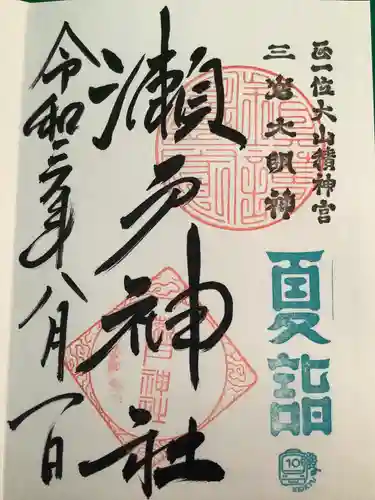 正一位大山積神宮
三嶌大明神
夏詣
10
瀬戸神社
令和三年八月一日